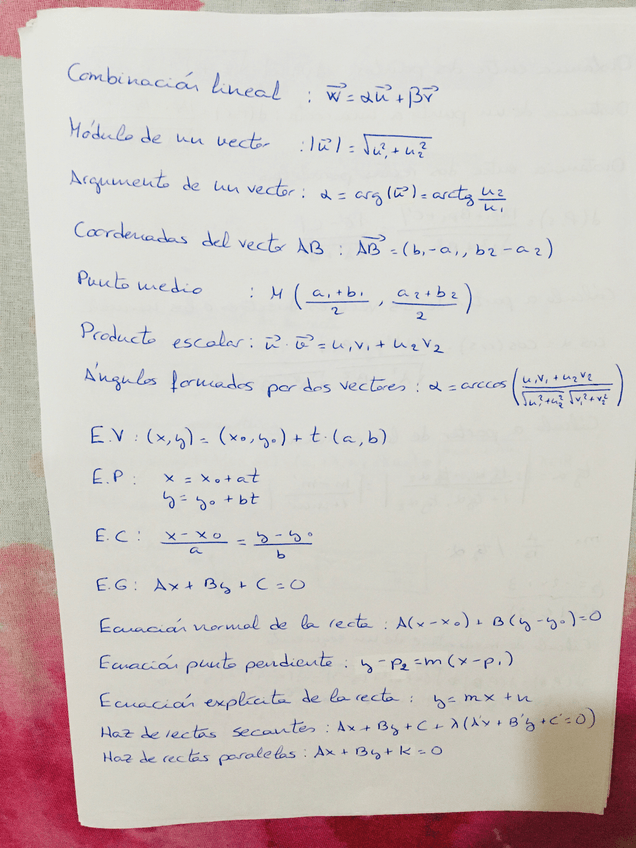 Combinación lineal : w⃗ = αu⃗ + βv⃗
Módulo de un vector : |u⃗| = √(u₁² + u₂²)
Argumento de un vector : α = arg(u⃗) = arctg u₂/u₁
Coordenadas del vector AB : AB⃗ = (b₁-a₁, b₂-a₂)
Punto medio : M ( (a₁+b₁)/2 , (a₂+b₂)/2 )
Producto escalar : u⃗ · v⃗ = u₁v₁ + u₂v₂
Ángulos formados por dos vectores : α = arccos ( (u₁v₁ + u₂v₂) / (√(u₁²+u₂²) √(v₁²+v₂²)) )
E.V : (x,y) = (x₀,y₀) + t·(a,b)
E.P : x = x₀ + at
y = y₀ + bt
E.C : (x-x₀)/a = (y-y₀)/b
E.G : Ax + By + C = 0
Ecuación normal de la recta : A(x-x₀) + B(y-y₀) = 0
Ecuación punto pendiente : y-p₂ = m(x-p₁)
Ecuación explícita de la recta : y = mx + n
Haz de rectas secantes : Ax + By + C + λ(A'x + B'y + C' = 0)
Haz de rectas paralelas : Ax + By + K = 0